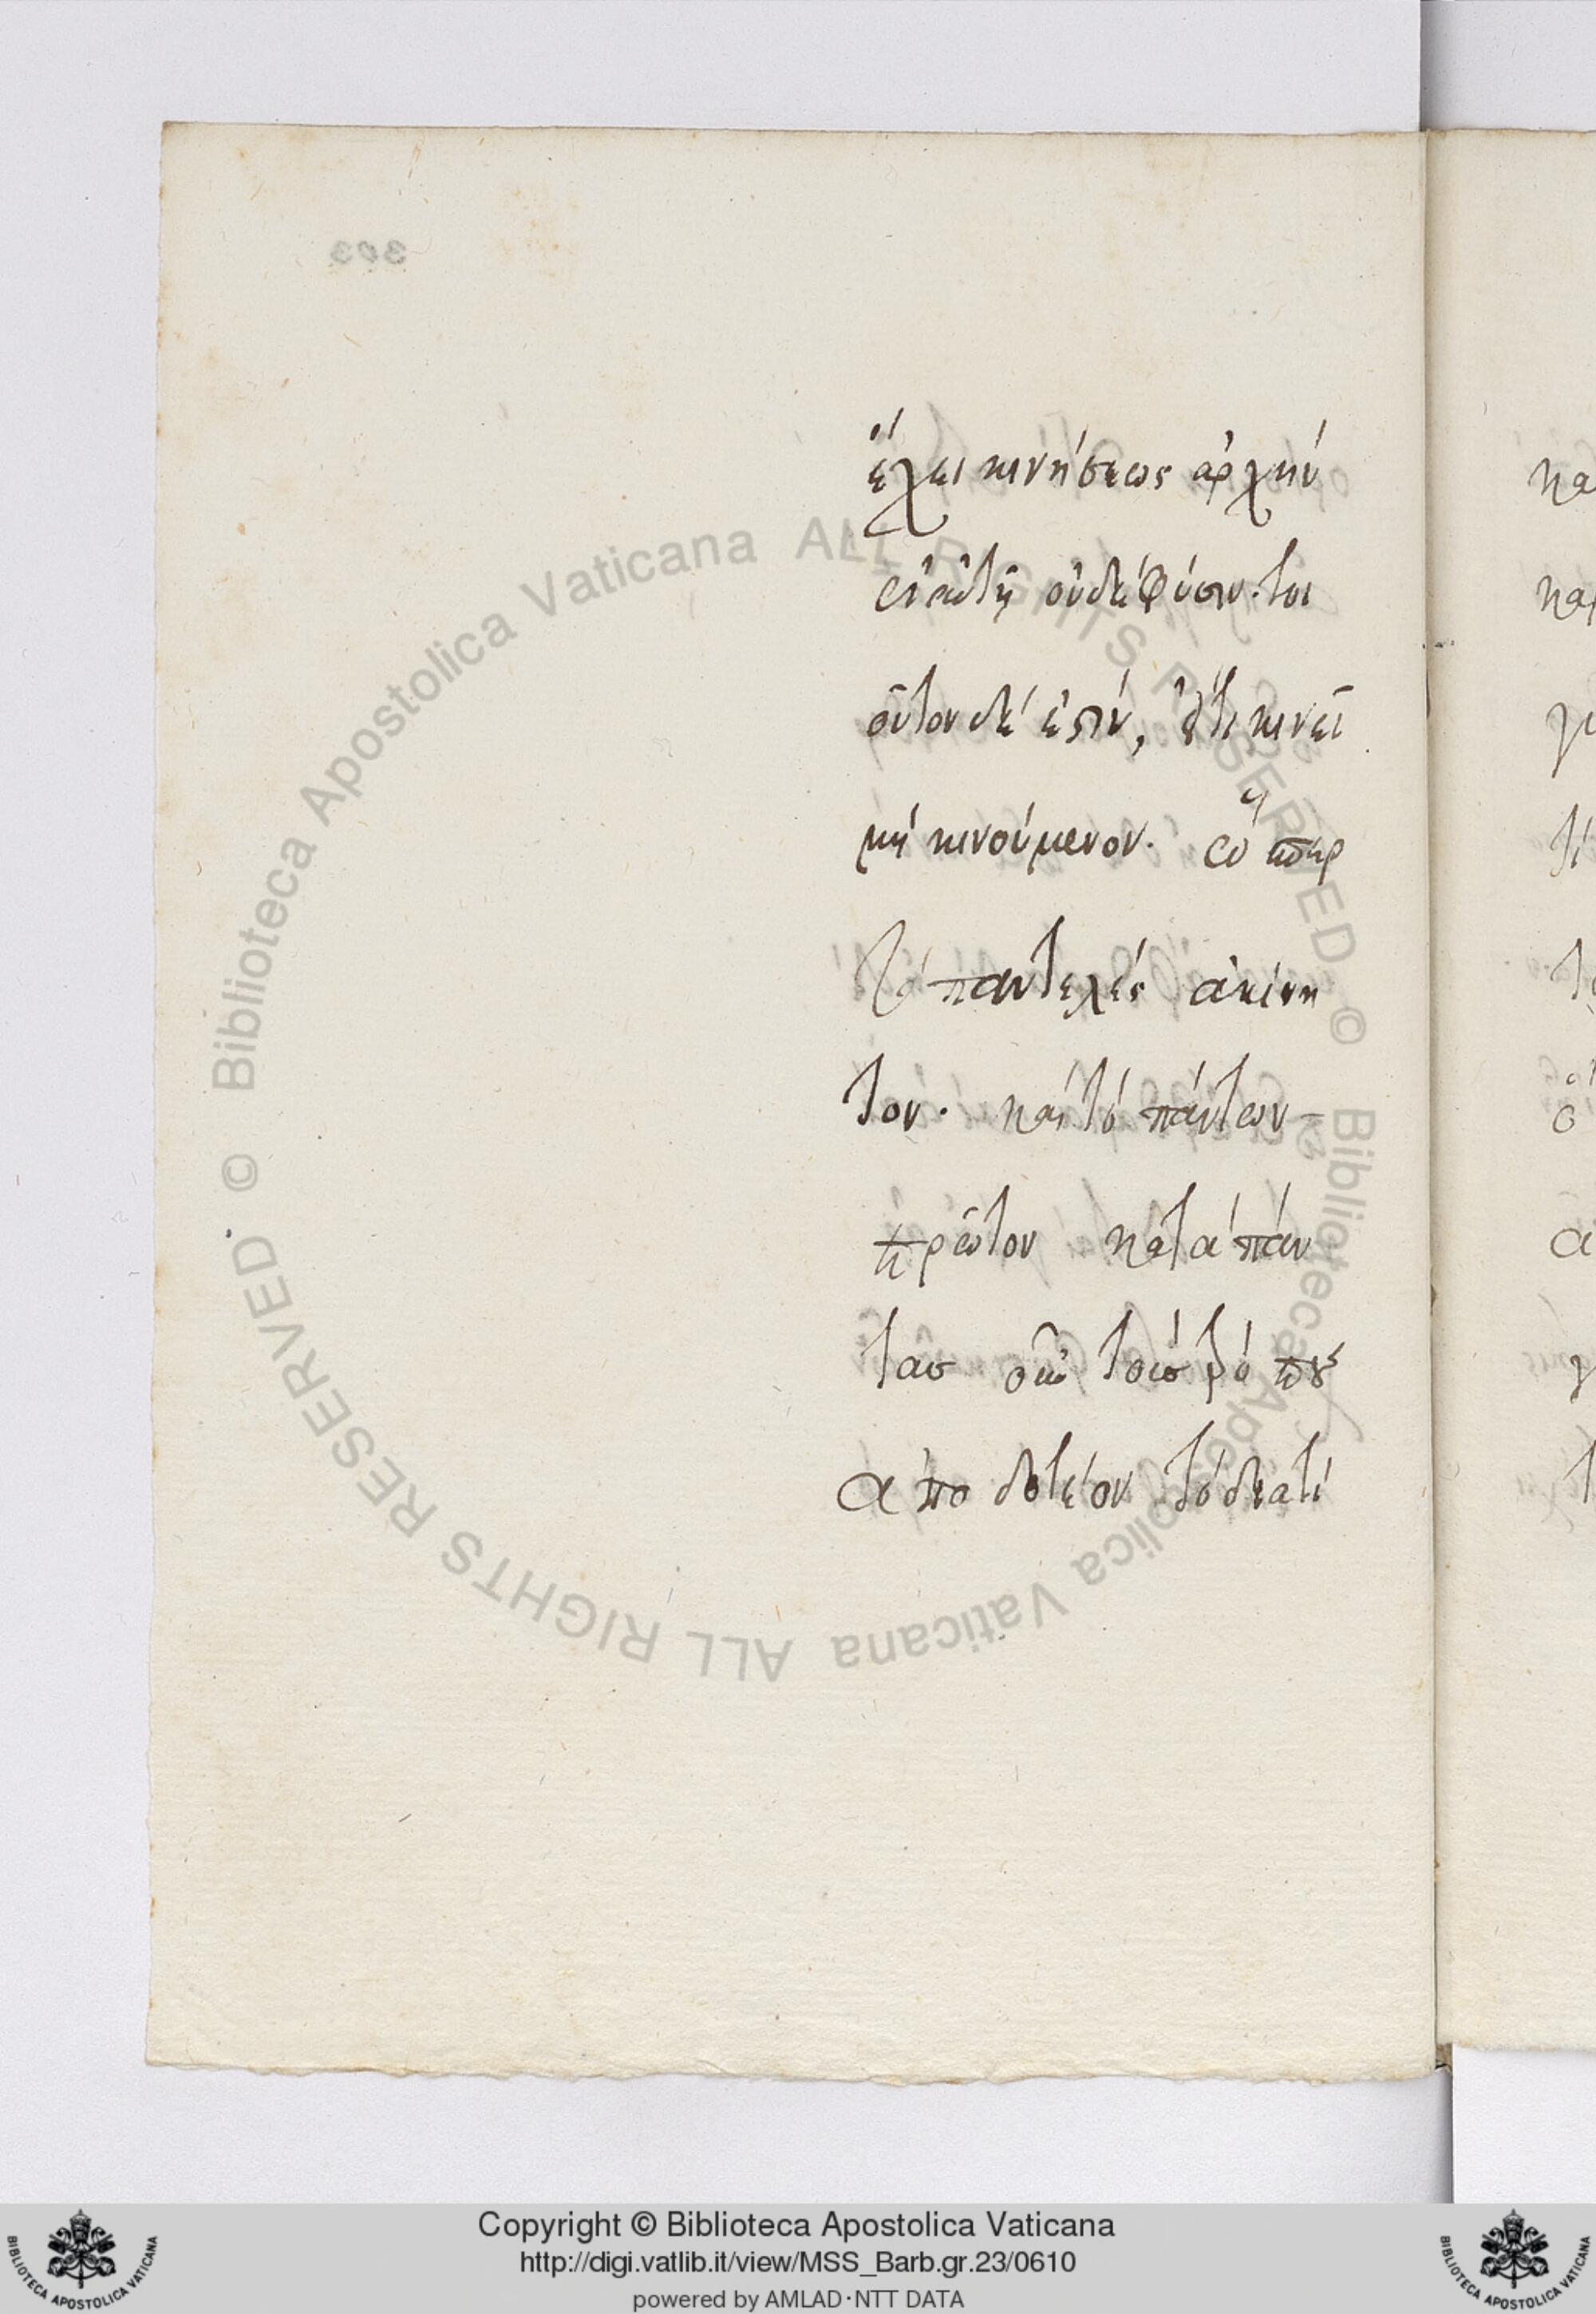 303
ἔχει κινήσεως ἀρχήν
ἐν αὑτῆ οὐδέ φύσιν. τοι
οῦτον δέ ἐστίν, εἴ τι κινεῖ
μή κινούμενον. ὥσπερ
τό παντελές ἀκίνη
τον. καί τό πάντων
πρῶτον κατά πάν
τασ τούσ
ἀπο δοτέον τό διατί
κα
και
γι
τί
το
ὁ
α
γ
τ
© Biblioteca Apostolica Vaticana ALL RIGHTS RESERVED © Biblioteca Apostolica Vaticana ALL RIGHTS RESERVED
Copyright © Biblioteca Apostolica Vaticana
http://digi.vatlib.it/view/MSS_Barb.gr.23/0610
powered by AMLAD·NTT DATA
BIBLIOTECA APOSTOLICA VATICANA
BIBLIOTECA APOSTOLICA VATICANA